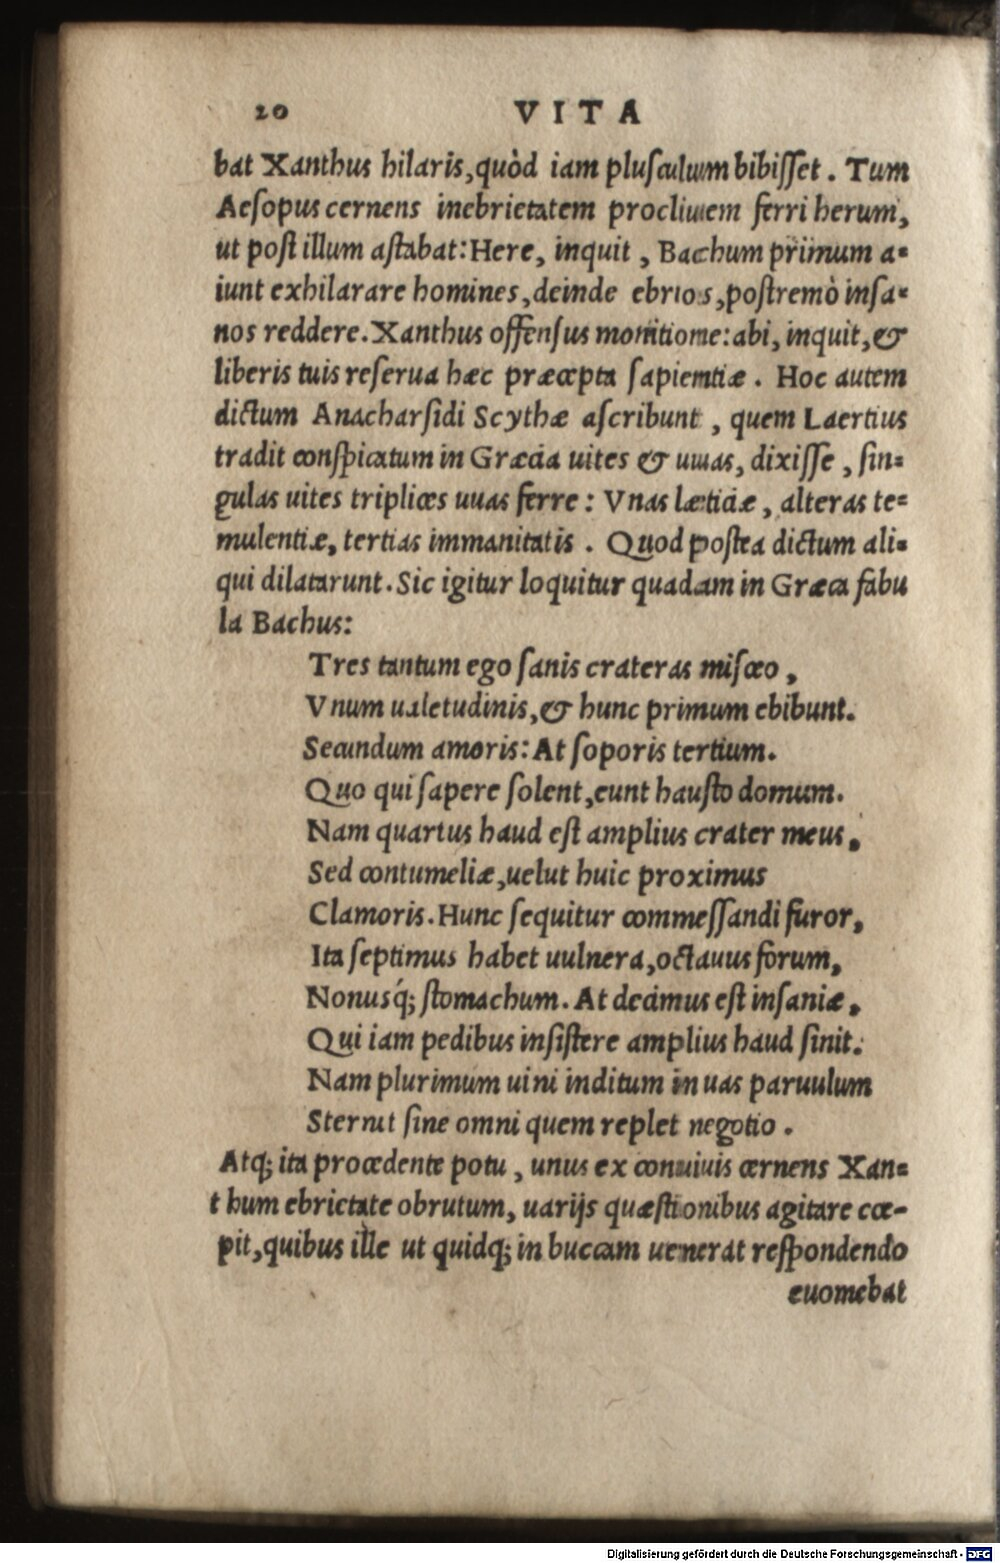 20 VITA
bat Xanthus hilaris, quòd iam plusculum bibisset. Tum
Aesopus cernens inebrietatem procliuem ferri herum,
ut post illum astabat: Here, inquit, Bachum primum a=
iunt exhilarare homines, deinde ebrios, postremò insa=
nos reddere. Xanthus offensus monitione: abi, inquit, &
liberis tuis reserua hæc præcepta sapientiæ. Hoc autem
dictum Anacharsidi Scythæ ascribunt, quem Laertius
tradit conspicatum in Græcia uites & uuas, dixisse, sin=
gulas uites triplices uuas ferre: Vnas læticiæ, alteras te=
mulentiæ, tertias immanitatis. Quod postea dictum ali=
qui dilatarunt. Sic igitur loquitur quadam in Græca fabu
la Bachus:
Tres tantum ego sanis crateras misceo,
Vnum ualetudinis, & hunc primum ebibunt.
Secundum amoris: At soporis tertium.
Quo qui sapere solent, eunt hausto domum.
Nam quartus haud est amplius crater meus,
Sed contumeliæ, uelut huic proximus
Clamoris. Hunc sequitur commessandi furor,
Ita septimus habet uulnera, octauus forum,
Nonusq́; stomachum. At decimus est insaniæ,
Qui iam pedibus insistere amplius haud sinit.
Nam plurimum uini inditum in uas paruulum
Sternit sine omni quem replet negotio.
Atq; ita procedente potu, unus ex conuiuis cernens Xan=
thum ebrietate obrutum, uarijs quæstionibus agitare cœ-
pit, quibus ille ut quidq; in buccam uenerat respondendo
euomebat
Digitalisierung gefördert durch die Deutsche Forschungsgemeinschaft - DFG